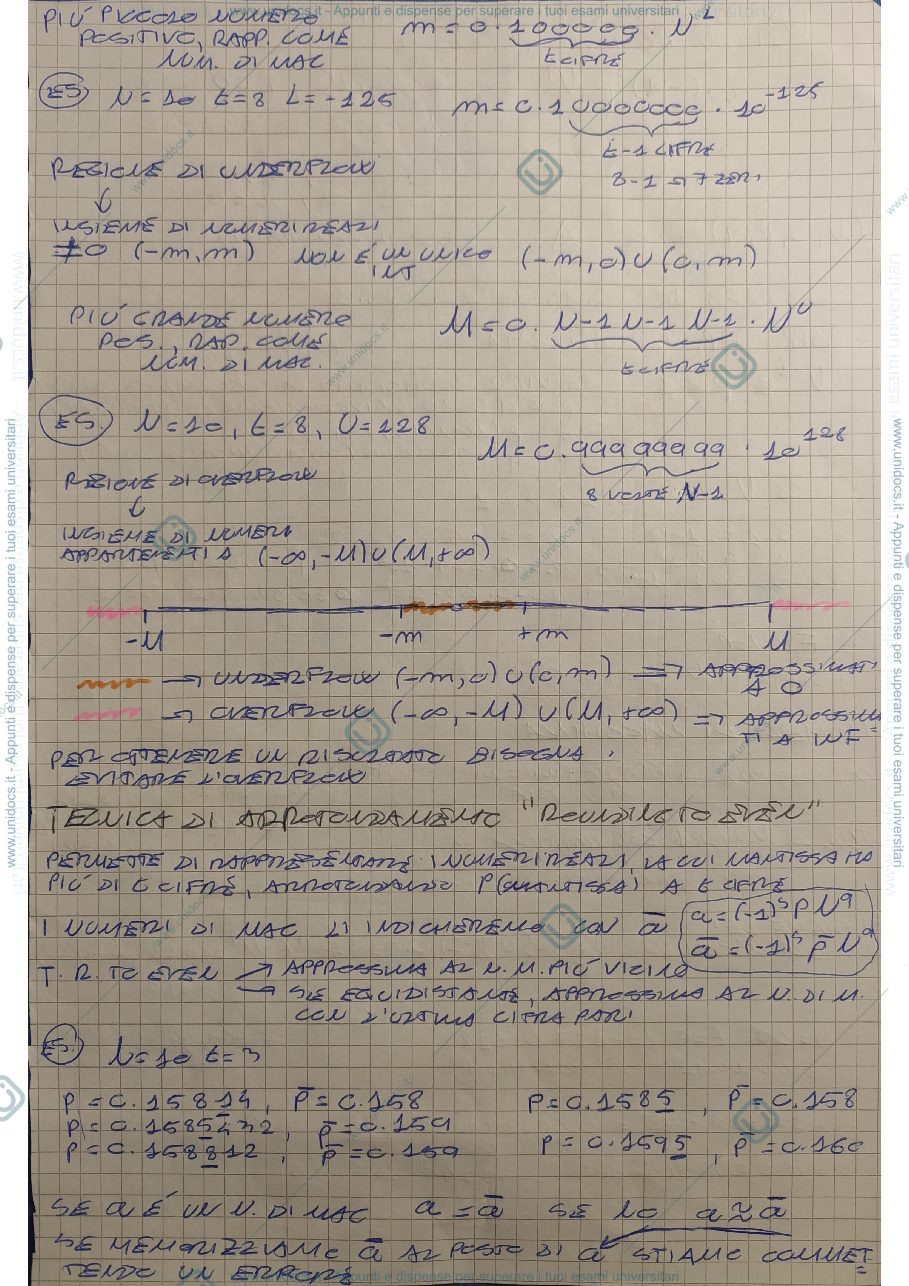 www.unidocs.it - Appunti e dispense per superare i tuoi esami universitari
PIÙ PICCOLO NUMERO
POSITIVO, RAPP. COME
NUM. DI MAC
m = 0.100000 · N^L
t CIFRE
ES N = 10 t = 8 L = -125
m = 0.10000000 · 10^-125
t-1 CIFRE
8-1 → 7 ZERI
REGIONE DI UNDERFLOW
↓
INSIEME DI NUMERI REALI
≠0 (-m, m) NON È UN UNICO INT (-m, 0) ∪ (0, m)
PIÙ GRANDE NUMERO
POS., RAP. COME
NUM. DI MAC.
M = 0. N-1 N-1 N-1 · N^U
t CIFRE
ES. N = 10, t = 8, U = 128
M = 0.99999999 · 10^128
8 VOLTE N-1
REGIONE DI OVERFLOW
↓
INSIEME DI NUMERI
APPARTENENTI A (-∞, -M) ∪ (M, +∞)
-M -m +m M
→ UNDERFLOW (-m, 0) ∪ (0, m) ⇒ APPROSSIMATI
A 0
→ OVERFLOW (-∞, -M) ∪ (M, +∞) ⇒ APPROSSIMA
TI A INF
PER OTTENERE UN RISULTATO BISOGNA
EVITARE L'OVERFLOW
TECNICA DI ARROTONDAMENTO "ROUNDING TO EVEN"
PERMETTE DI RAPPRESENTARE I NUMERI REALI, LA CUI MANTISSA HA
PIÙ DI t CIFRE, ARROTONDANDO P (MANTISSA) A t CIFRE
I NUMERI DI MAC LI INDICHEREMO CON a̅
a = (-1)^s P N^q
a̅ = (-1)^s p̅ N^q
T. R. TO EVEN → APPROSSIMA AL N. M. PIÙ VICINO
→ SE EQUIDISTANTE, APPROSSIMA AL N. DI M.
CON L'ULTIMA CIFRA PARI
ES. N = 10 t = 3
P = 0.15814, p̅ = 0.158 P = 0.1585, p̅ = 0.158
P = 0.1585432, p̅ = 0.159
P = 0.158812, p̅ = 0.159 P = 0.1595, p̅ = 0.160
SE a È UN N. DI MAC a = a̅ SE NO a ≈ a̅
SE MEMORIZZIAMO a̅ AL POSTO DI a STIAMO COMMET=
TENDO UN ERRORE